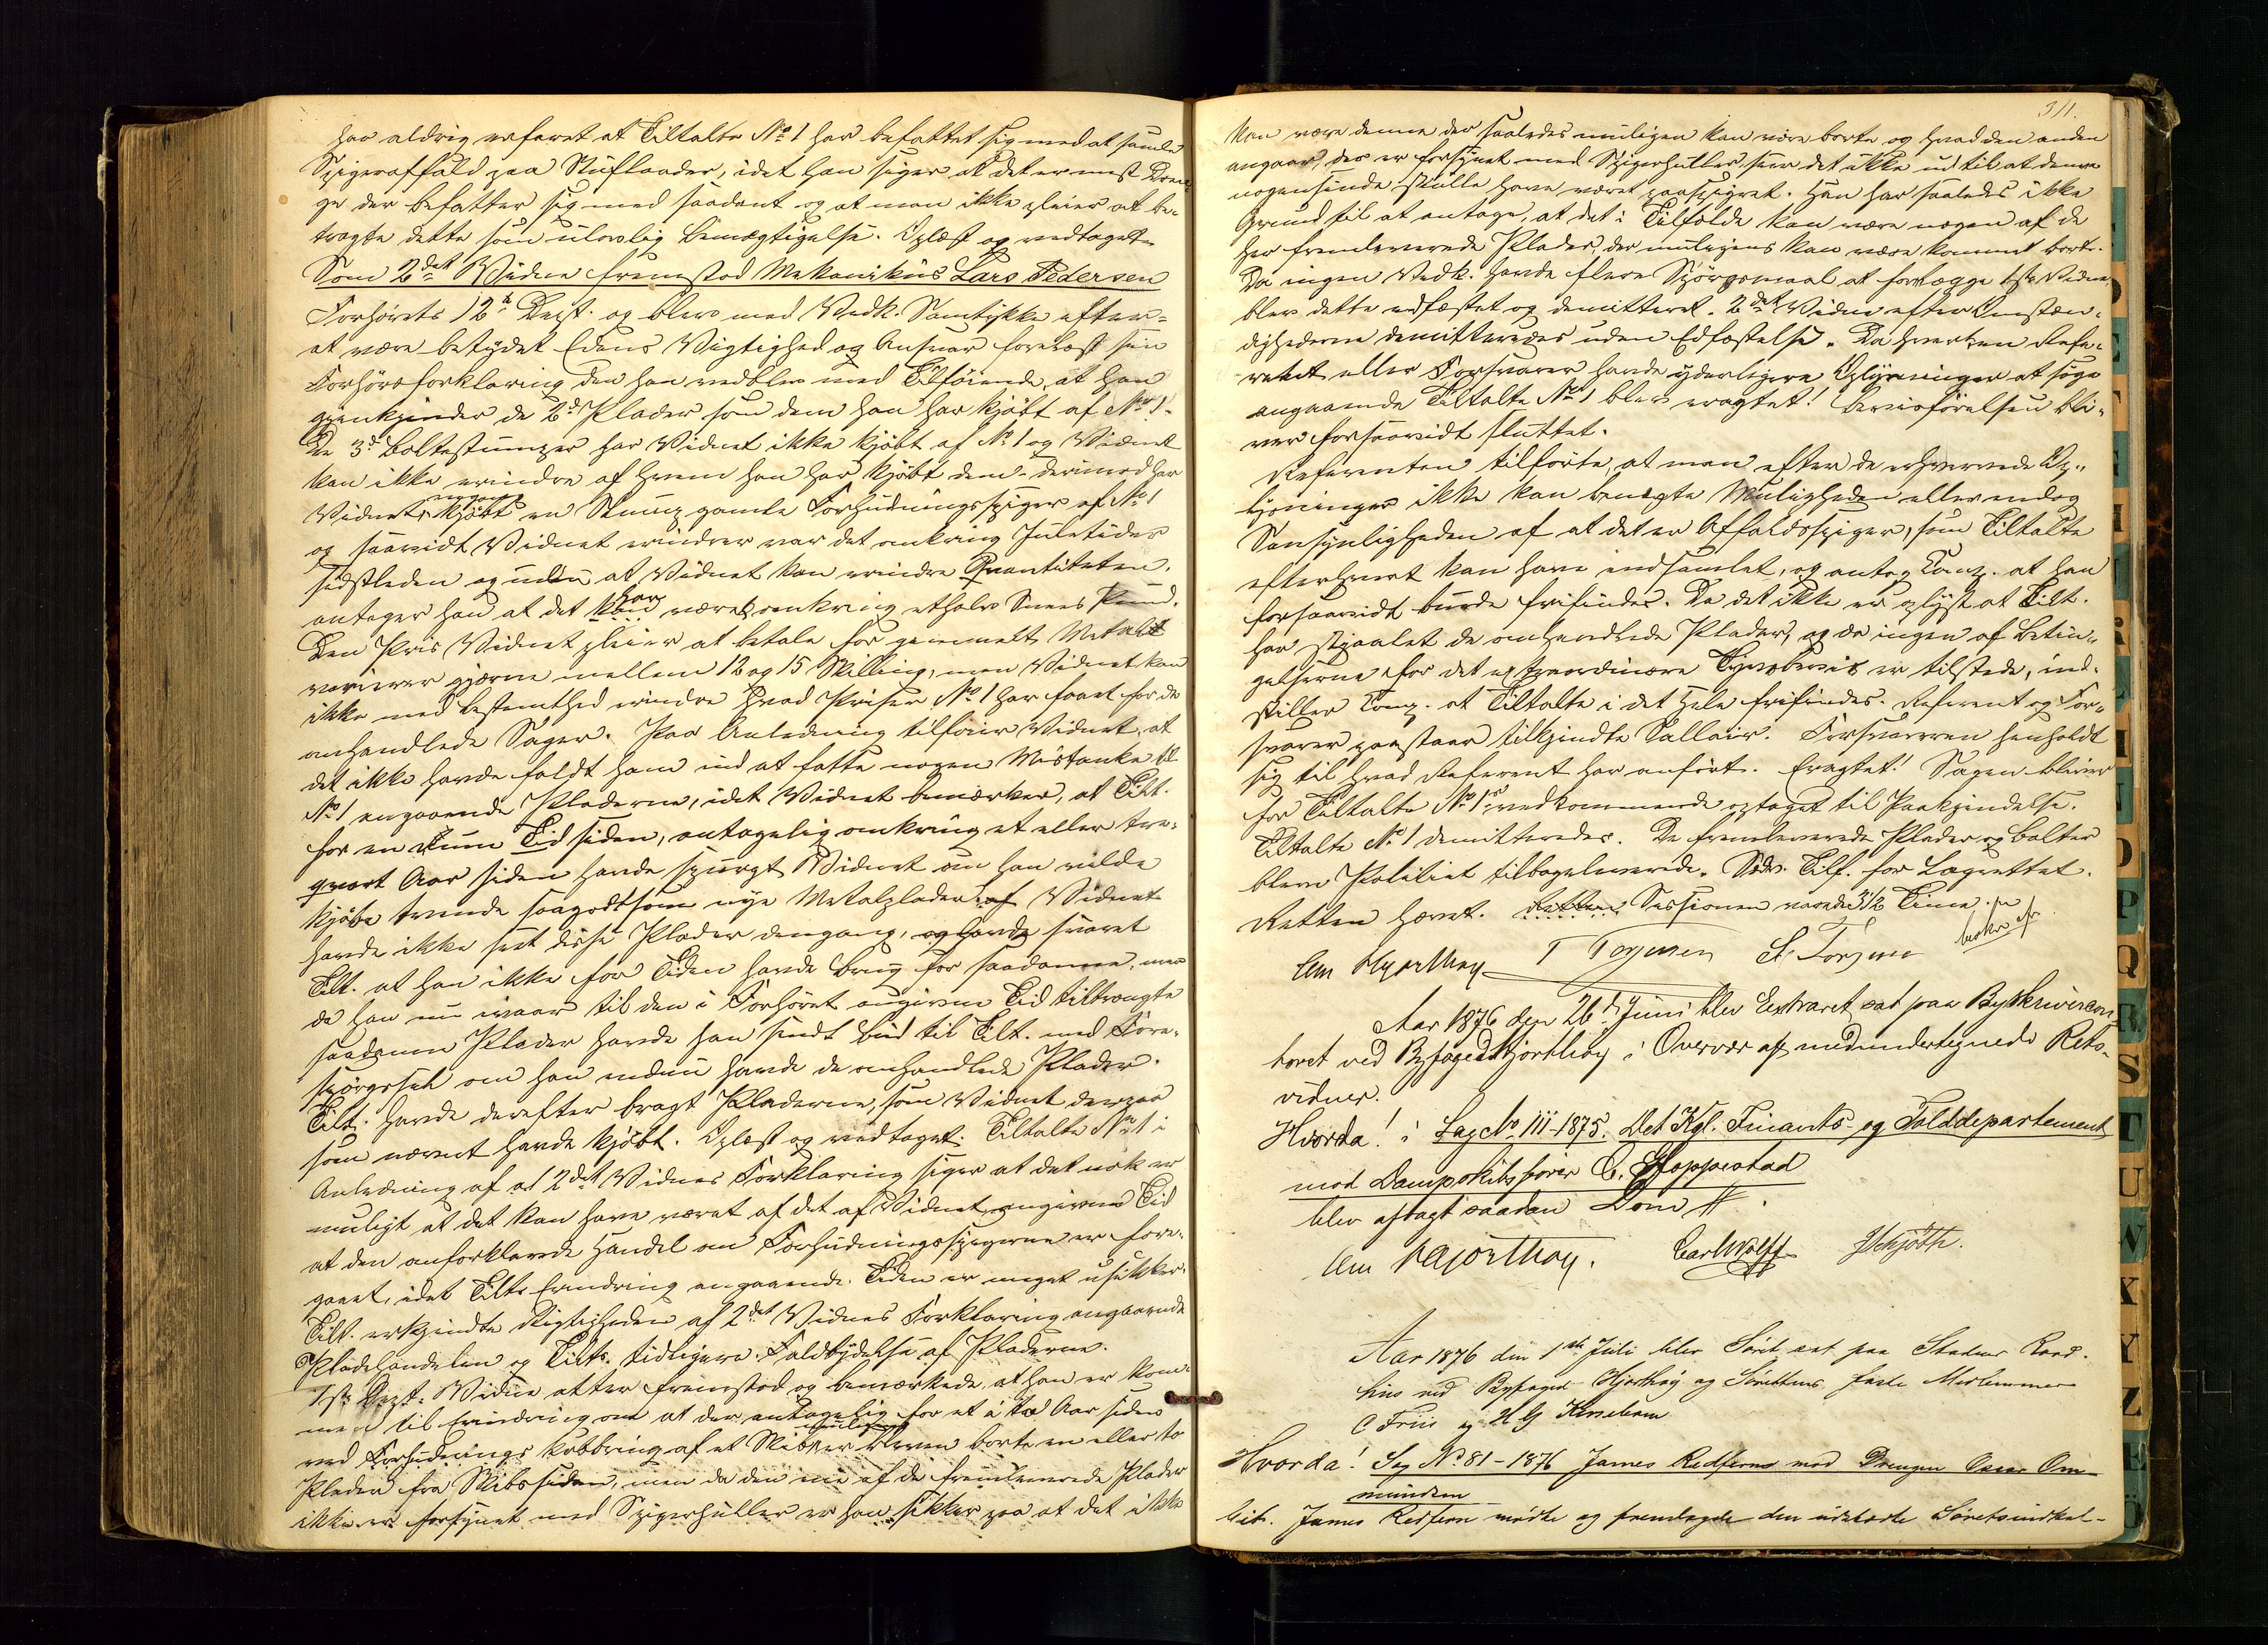 har aldrig erfaret at Tiltalte No 1 har befattet sig med at samle
Spigeraffald paa Stuflaader, idet han siger at det er mest Dren-
ge der befatter sig med saadant og at man ikke pleier at be-
tragte dette som ulovlig Bemægtigelse. Oplæst og vedtaget.
Som 2det Vidne fremstod Mekanikus Lars Pedersen
Forhørets 12te Depst. og blev med Vedk. Samtykke efter-
at være betydet Edens Vigtighed og Ansvar forelæst sin
Forhørsforklaring den han vedblev med Tilføiende, at han
gjenkjender de 2de Plader som dem han har kjøbt af No 1.
De 3de Boltestumper har Vidnet ikke kjøbt af No 1 og Vidnet
kan ikke erindre af hvem han har kjøbt dem. Derimod har
Vidnet engang kjøbt en Slump gamle Forhudningsspiger af No 1
og saavidt Vidnet erindrer var det omkring Juletider
sidstleden og uden at Vidnet kan erindre Qvantiteten,
antager han at det kan have været omkring et halv Snees Pund.
Den Pris Vidnet pleier at betale for gammelt Metal
varierer gjerne mellem 12 og 15 Skilling, men Vidnet kan
ikke med Bestemthed erindre hvad Priser No 1 har faaet for de
omhandlede Sager. Paa Anledning tilføier Vidnet, at
det ikke havde faldt ham ind at fatte nogen Mistanke til
No 1 angaaende Pladerne, idet Vidnet bemærker, at Tilt.
for en Tid siden, antagelig omkring et eller tre-
qvart Aar siden havde spurgt Vidnet om han vilde
kjøbe tvende saagodtsom nye Metalplader af Vidnet
havde ikke seet disse Plader dengang, og havde svaret
Tilt. at han ikke for Tiden havde Brug for saadanne, men
da han nu ivaar til den i Forhøret angivne Tid tiltrængte
saadanne Plader havde han sendt Bud til Tilt. med Fore-
spørgsel om han endnu havde de omhandlede Plader.
Tilt. havde derefter bragt Pladerne, som Vidnet derpaa
som nævnt havde kjøbt. Oplæst og vedtaget. Tiltalte No 1 i
Anledning af 2det Vidnes Forklaring siger at det nok er
muligt at det kan have været af det af Vidnet angivne Tid
at den omforklarede Handel om Forhudningsspigerne er fore-
gaaet, idet Tilts Erindring angaaende Tiden er meget usikker.
Tilt. erkjendte Rigtigheden af 2det Vidnes Forklaring angaaende
Pladehandelen og Tilts. tidligere Faldbydelse af Pladerne.
1ste Depst. Vidne atter fremstod og bemærkede at han er kom-
men til Erindring om at der antagelig for et à to Aar siden
ved Forhudnings Kobbring af et Skib er muligens bleven borte en eller to
Plader fra Skibssiden, men da den ene af de fremleverede Plader
ikke er forsynet med Spigerhuller er han sikker paa at det ikke
311.
kan være denne der saaledes muligen kan være borte og hvad den anden
angaar, der er forsynet med Spigerhuller, seer det ikke ud til at denne
nogensinde skulle have været paaspigret. Han har saaledes ikke
Grund til at antage, at det i Tilfælde kan være nogen af de
her fremleverede Plader, der muligens kan være kommet bort.
Da ingen Vedk. havde flere Spørgsmaal at forelægge 1ste Vidne,
blev dette edfæstet og demitteret. 2det Vidne efter Omstæn-
dighederne demitteredes uden Edfæstelse. Da hverken Refe-
rent eller Forsvarer havde yderligere Oplysninger at søge
angaaende Tiltalte No 1 blev eragtet! Bevisførelsen bli-
ver forsaavidt sluttet.
Referenten tilførte, at man efter de erhvervede Op-
lysninger ikke kan benægte Muligheden eller endog
Sansynligheden af at det er Affaldsspiger, som Tiltalte
efterhvert kan have indsamlet, og antog Comp. at han
forsaavidt burde frifindes. Da det ikke er oplyst at Tilt.
har stjaalet de omhandlede Plader, og da ingen af Betin-
gelserne for det extraordinære Tyvsbevis er tilstede, ind-
stiller Comp. at Tiltalte i det Hele frifindes. Referent og For-
svarer paastaar tilkjendte Sallair. Forsvareren henholdt
sig til hvad Referent har anført. Eragtet! Sagen bliver
for Tiltalte No 1s vedkommende optaget til Paakjendelse.
Tiltalte No 1 demitteredes. De fremleverede Plader og Bolter
bleve Politiet tilbageleverede. Tilf. for Lagrettet.
Retten hævet. Sessionen varede 3 1/2 Time.
Chr Hjorthøy T Torjusen
Aar 1876 den 26de Juni blev Extraret sat paa Byskrivercon-
toret ved Byfoged Hjorthøy i Overvær af medundertegnede Rets-
vidner.
Hvorda! i Sag No 111-1875. Det Kgl. Finants- og Tolddepartement
mod Dampskibsfører C. Hoppestad
blev afsagt saadan Dom
Chr Hjorthøy. Carl Wolff Schjøth.
Aar 1876 den 1ste Juli blev Søret sat paa Stadens Raad-
hus ved Byfoged Hjorthøy og Sørettens faste Medlemmer
C Friis og H G
Hvorda! Sag No 81-1876 James Redferns mod Drengen Oscar Om-
mundsen
Cit. James Redfern mødte og fremlagde den udstædte Søretsindkal-